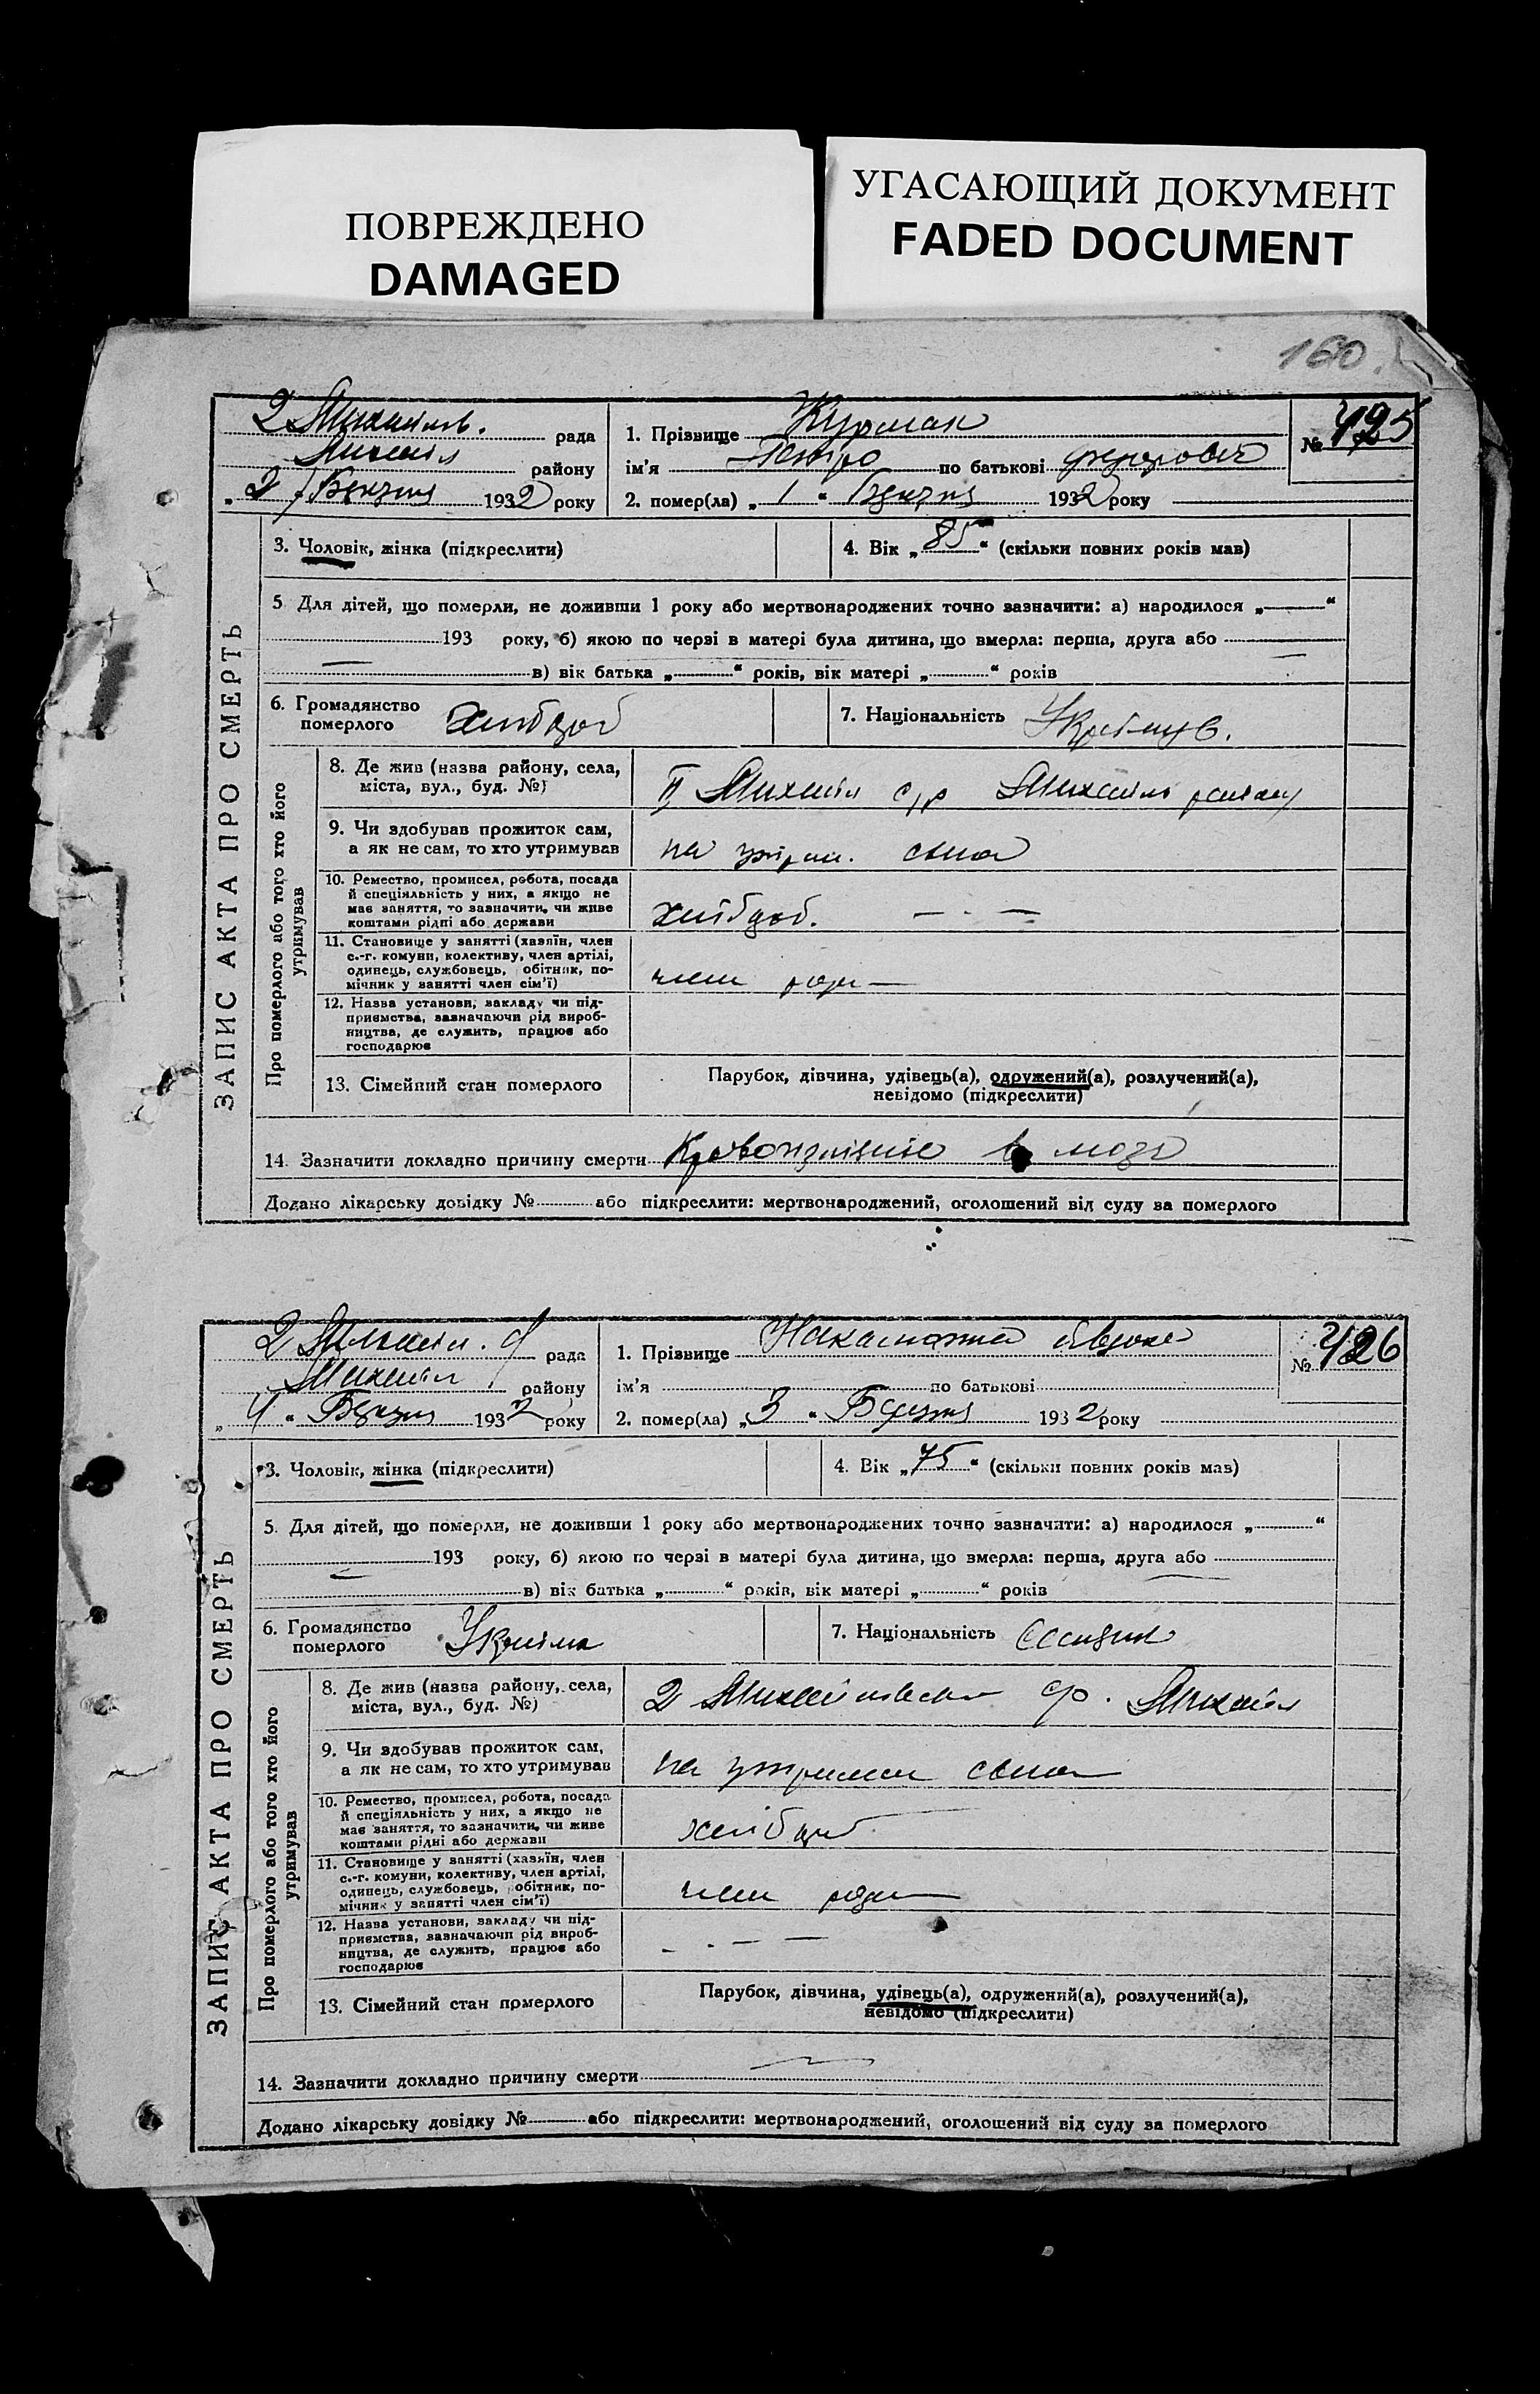 ПОВРЕЖДЕНО
DAMAGED
УГАСАЮЩИЙ ДОКУМЕНТ
FADED DOCUMENT
160.
ЗАПИС АКТА ПРО СМЕРТЬ
2 рада
району
„2 1932 року
1. Прізвище Курман
ім'я Петро по батькові
2. помер(ла) „1“ 1932 року
№ 425
3. Чоловік, жінка (підкреслити)
4. Вік „85“ (скільки повних років мав)
5 Для дітей, що померли, не доживши 1 року або мертвонароджених точно зазначити: а) народилося „—“
193 року, б) якою по черзі в матері була дитина, що вмерла: перша, друга або —
— в) вік батька „ “ років, вік матері „ “ років
6. Громадянство
померлого
7. Національність
Про померлого або того хто його
утримував
8. Де жив (назва району, села,
міста, вул., буд. №)
9. Чи здобував прожиток сам,
а як не сам, то хто утримував
на сина
10. Ремество, промисел, робота, посада
й спеціяльність у них, а якщо не
має заняття, то зазначити, чи живе
коштами рідні або держави
11. Становище у занятті (хазяїн, член
с.-г. комуни, колективу, член артілі,
одинець, службовець, обітник, по-
мічник у занятті член сім'ї)
член
12. Назва установи, закладу чи під-
приємства, зазначаючи рід вироб-
ництва, де служить, працює або
господарює
13. Сімейний стан померлого
Парубок, дівчина, удівець(а), одружений(а), розлучений(а),
невідомо (підкреслити)
14. Зазначити докладно причину смерти
Додано лікарську довідку № або підкреслити: мертвонароджений, оголошений від суду за померлого
ЗАПИС АКТА ПРО СМЕРТЬ
2 рада
району
„4“ 1932 року
1. Прізвище
ім'я по батькові
2. помер(ла) „3“ Березня 1932 року
№ 426
3. Чоловік, жінка (підкреслити)
4. Вік „75“ (скільки повних років мав)
5. Для дітей, що померли, не доживши 1 року або мертвонароджених точно зазначити: а) народилося „ “
193 року, б) якою по черзі в матері була дитина, що вмерла: перша, друга або
в) вік батька „ “ років, вік матері „ “ років
6. Громадянство
померлого
7. Національність
Про померлого або того хто його
утримував
8. Де жив (назва району, села,
міста, вул., буд. №)
2
9. Чи здобував прожиток сам,
а як не сам, то хто утримував
на сина
10. Ремество, промисел, робота, посада
й спеціяльність у них, а якщо не
має заняття, то зазначити, чи живе
коштами рідні або держави
11. Становище у занятті (хазяїн, член
с.-г. комуни, колективу, член артілі,
одинець, службовець, обітник, по-
мічник у занятті член сім'ї)
член
12. Назва установи, закладу чи під-
приємства, зазначаючи рід вироб-
ництва, де служить, працює або
господарює
13. Сімейний стан померлого
Парубок, дівчина, удівець(а), одружений(а), розлучений(а),
невідомо (підкреслити)
14. Зазначити докладно причину смерти
Додано лікарську довідку № або підкреслити: мертвонароджений, оголошений від суду за померлого